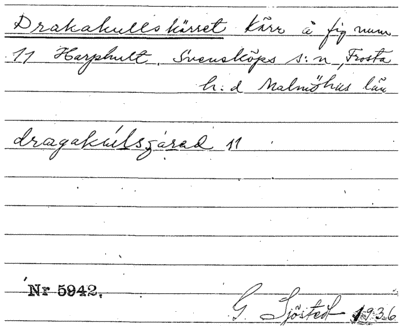 Drakakullskärret Kärr å fig num
11 Harphult, Svensköps s:n, Frosta
h:d Malmöhus län
dragakúlsʒárad 11
Nr 5942.
G. Sjöstedt 1936